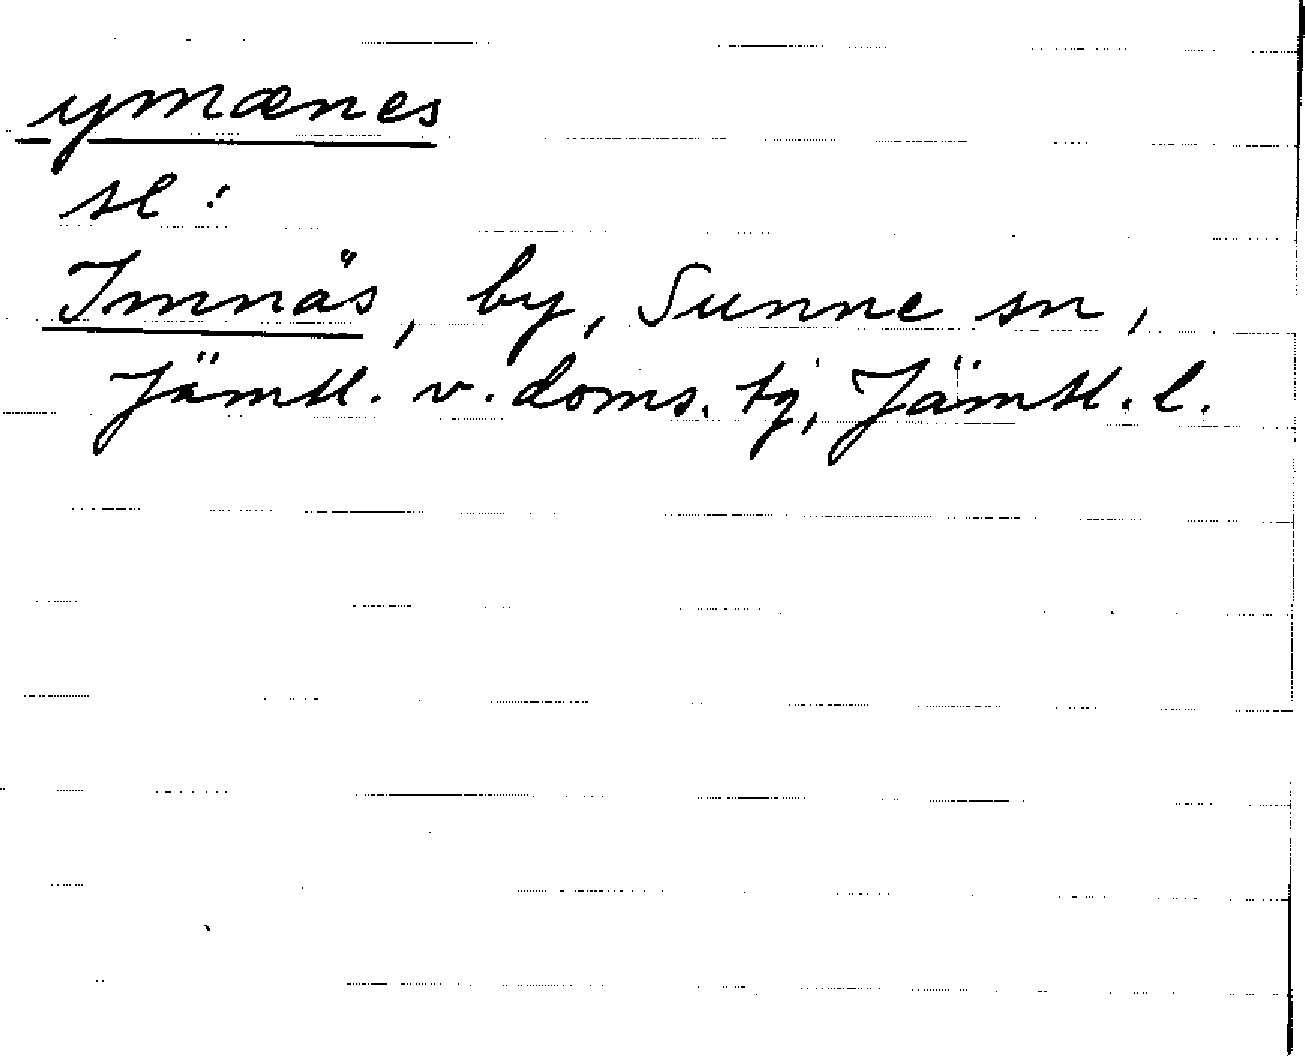 ymænes
se:
Imnäs, by, Sunne sn,
Jämtl. v. doms. tg, Jämtl. l.